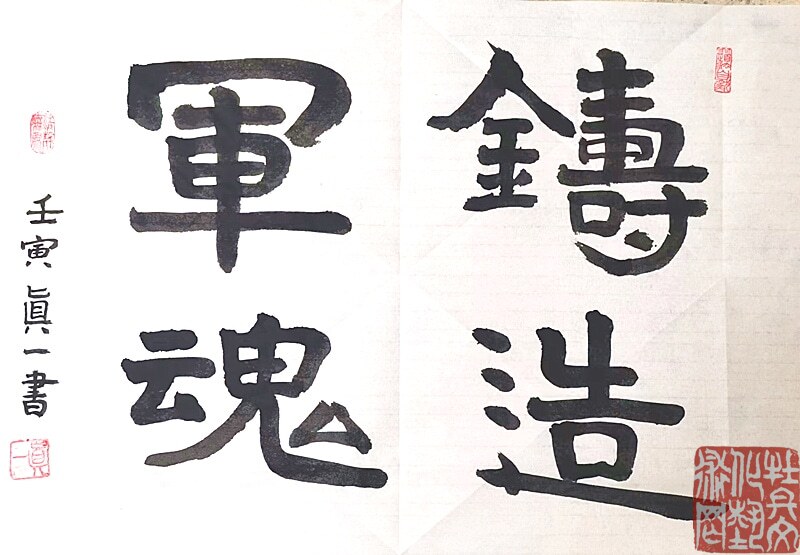 鑄造
軍魂
壬寅眞一書